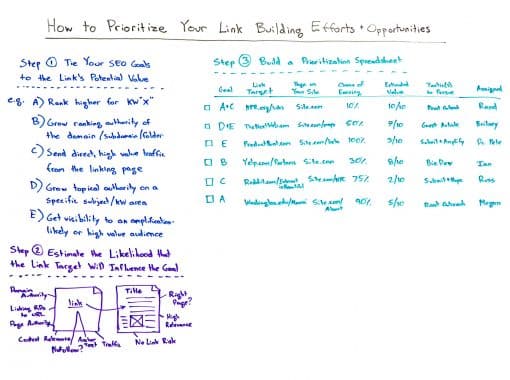 How to Prioritize Your Link Building Efforts + Opportunities
Step ① Tie Your SEO Goals
to the Link's Potential Value
e.g. A) Rank higher for KW "X"
B) Grow ranking authority of
the domain/subdomain/folder
C) Send direct, high value traffic
from the linking page
D) Grow topical authority on a
specific subject/KW area
E) Get visibility to an amplification-
likely or high value audience
Step ② Estimate the Likelihood that
the Link Target Will Influence the Goal
Domain
Authority
Linking RDs
to URL
Page Authority
Content Relevance
Nofollow?
Anchor
Text
Traffic
link
Title
Right
Page?
High
Relevance
No Link Risk
Step ③ Build a Prioritization Spreadsheet
Goal Link Target Page on Your Site Chance of Earning Estimated Value Tactic(s) to Pursue Assigned
A+C NPR.org/ Site.com 10% 10/10 Rand
D+E Site.com/ 50% 7/10 Guest Article Britney
E Site.com/ 100% 3/10 Submit + Amplify Dr. Pete
B Yelp.com/ Site.com 30% 8/10 Biz Dev
C Reddit.com/ Site.com/ 75% 2/10 Russ
A Washington.edu/ Site.com/About 90% 5/10 Outreach